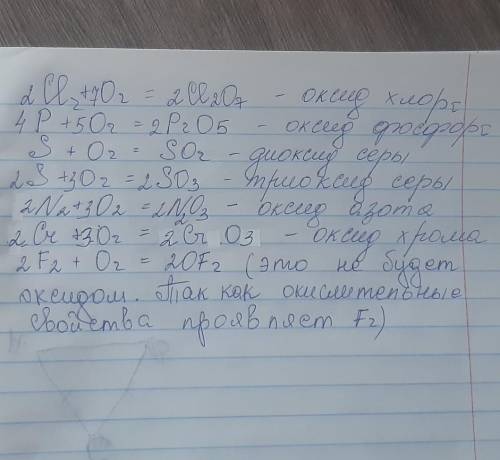 2Cl2+7O2 = 2Cl2O7 - оксид хлора
4P + 5O2 = 2P2O5 - оксид фосфора
S + O2 = SO2 - диоксид серы
2S +3O2 = 2SO3 - триоксид серы
2N2+3O2 = 2N2O3 - оксид азота
2Cr +3O2 = 2CrO3 - оксид хрома
2F2 + O2 = 2OF2 (это не будет
оксидом. Так как окислительные
свойства проявляет F2)